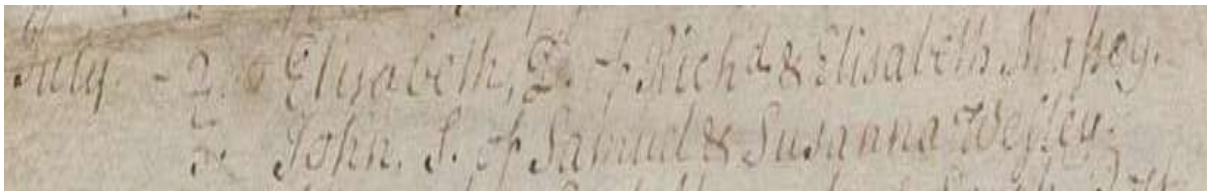 July. - 2. Elisabeth, D. of Richd & Elisabeth Maſsey.
3. John. S. of Samuel & Susanna Weſley.